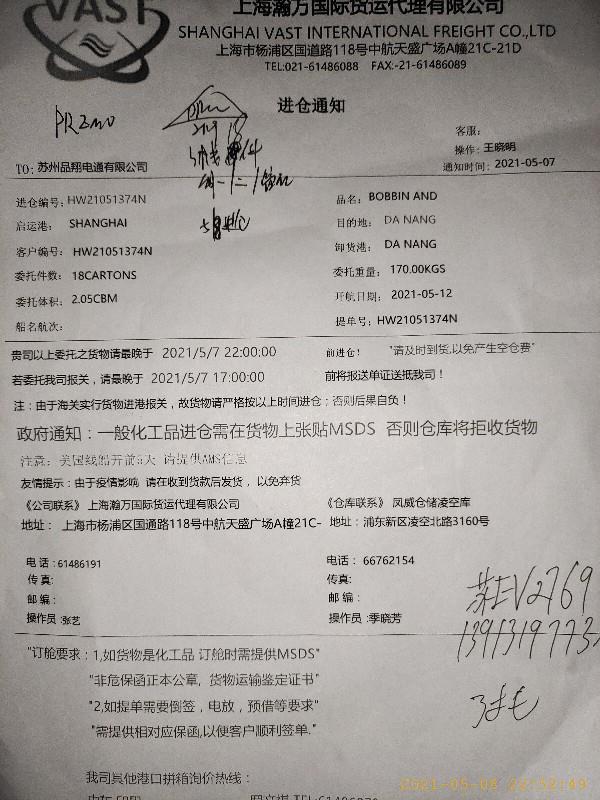 VAST
上海瀚万国际货运代理有限公司
SHANGHAI VAST INTERNATIONAL FREIGHT CO.,LTD
上海市杨浦区国道路118号中航天盛广场A幢21C-21D
TEL:021-61486088 FAX:-21-61486089
进仓通知
客服：
操作：王晓明
TO: 苏州品翔电通有限公司
通知时间：2021-05-07
进仓编号：HW21051374N
品名：BOBBIN AND
启运港： SHANGHAI
目的地： DA NANG
客户编号： HW21051374N
卸货港： DA NANG
委托件数：18CARTONS
委托重量：170.00KGS
委托体积：2.05CBM
开航日期： 2021-05-12
船名航次：
提单号：HW21051374N
贵司以上委托之货物请最晚于 2021/5/7 22:00:00 前进仓！ "请及时到货,以免产生空仓费"
若委托我司报关，请最晚于 2021/5/7 17:00:00 前将报送单证送抵我司！
注：由于海关实行货物进港报关，故货物请严格按以上时间进仓；否则后果自负！
政府通知：一般化工品进仓需在货物上张贴MSDS 否则仓库将拒收货物
注意：美国线船开前5天 请提供AMS信息
友情提示：由于疫情影响 请在收到货款后发货，以免弃货
《公司联系》上海瀚万国际货运代理有限公司
《仓库联系》 凤威仓储凌空库
地址： 上海市杨浦区国通路118号中航天盛广场A幢21C-
地址：浦东新区凌空北路3160号
电话：61486191
电话： 66762154
传真：
传真：
邮编：
邮编：
操作员：张艺
操作员：季晓芳
苏EV2769
"订舱要求：1,如货物是化工品 订舱时需提供MSDS"
"非危保函正本公章，货物运输鉴定证书"
"2,如提单需要倒签，电放，预借等要求"
"需提供相对应保函,以便客户顺利签单."
我司其他港口拼箱询价热线：
2021-05-08 22:52:49